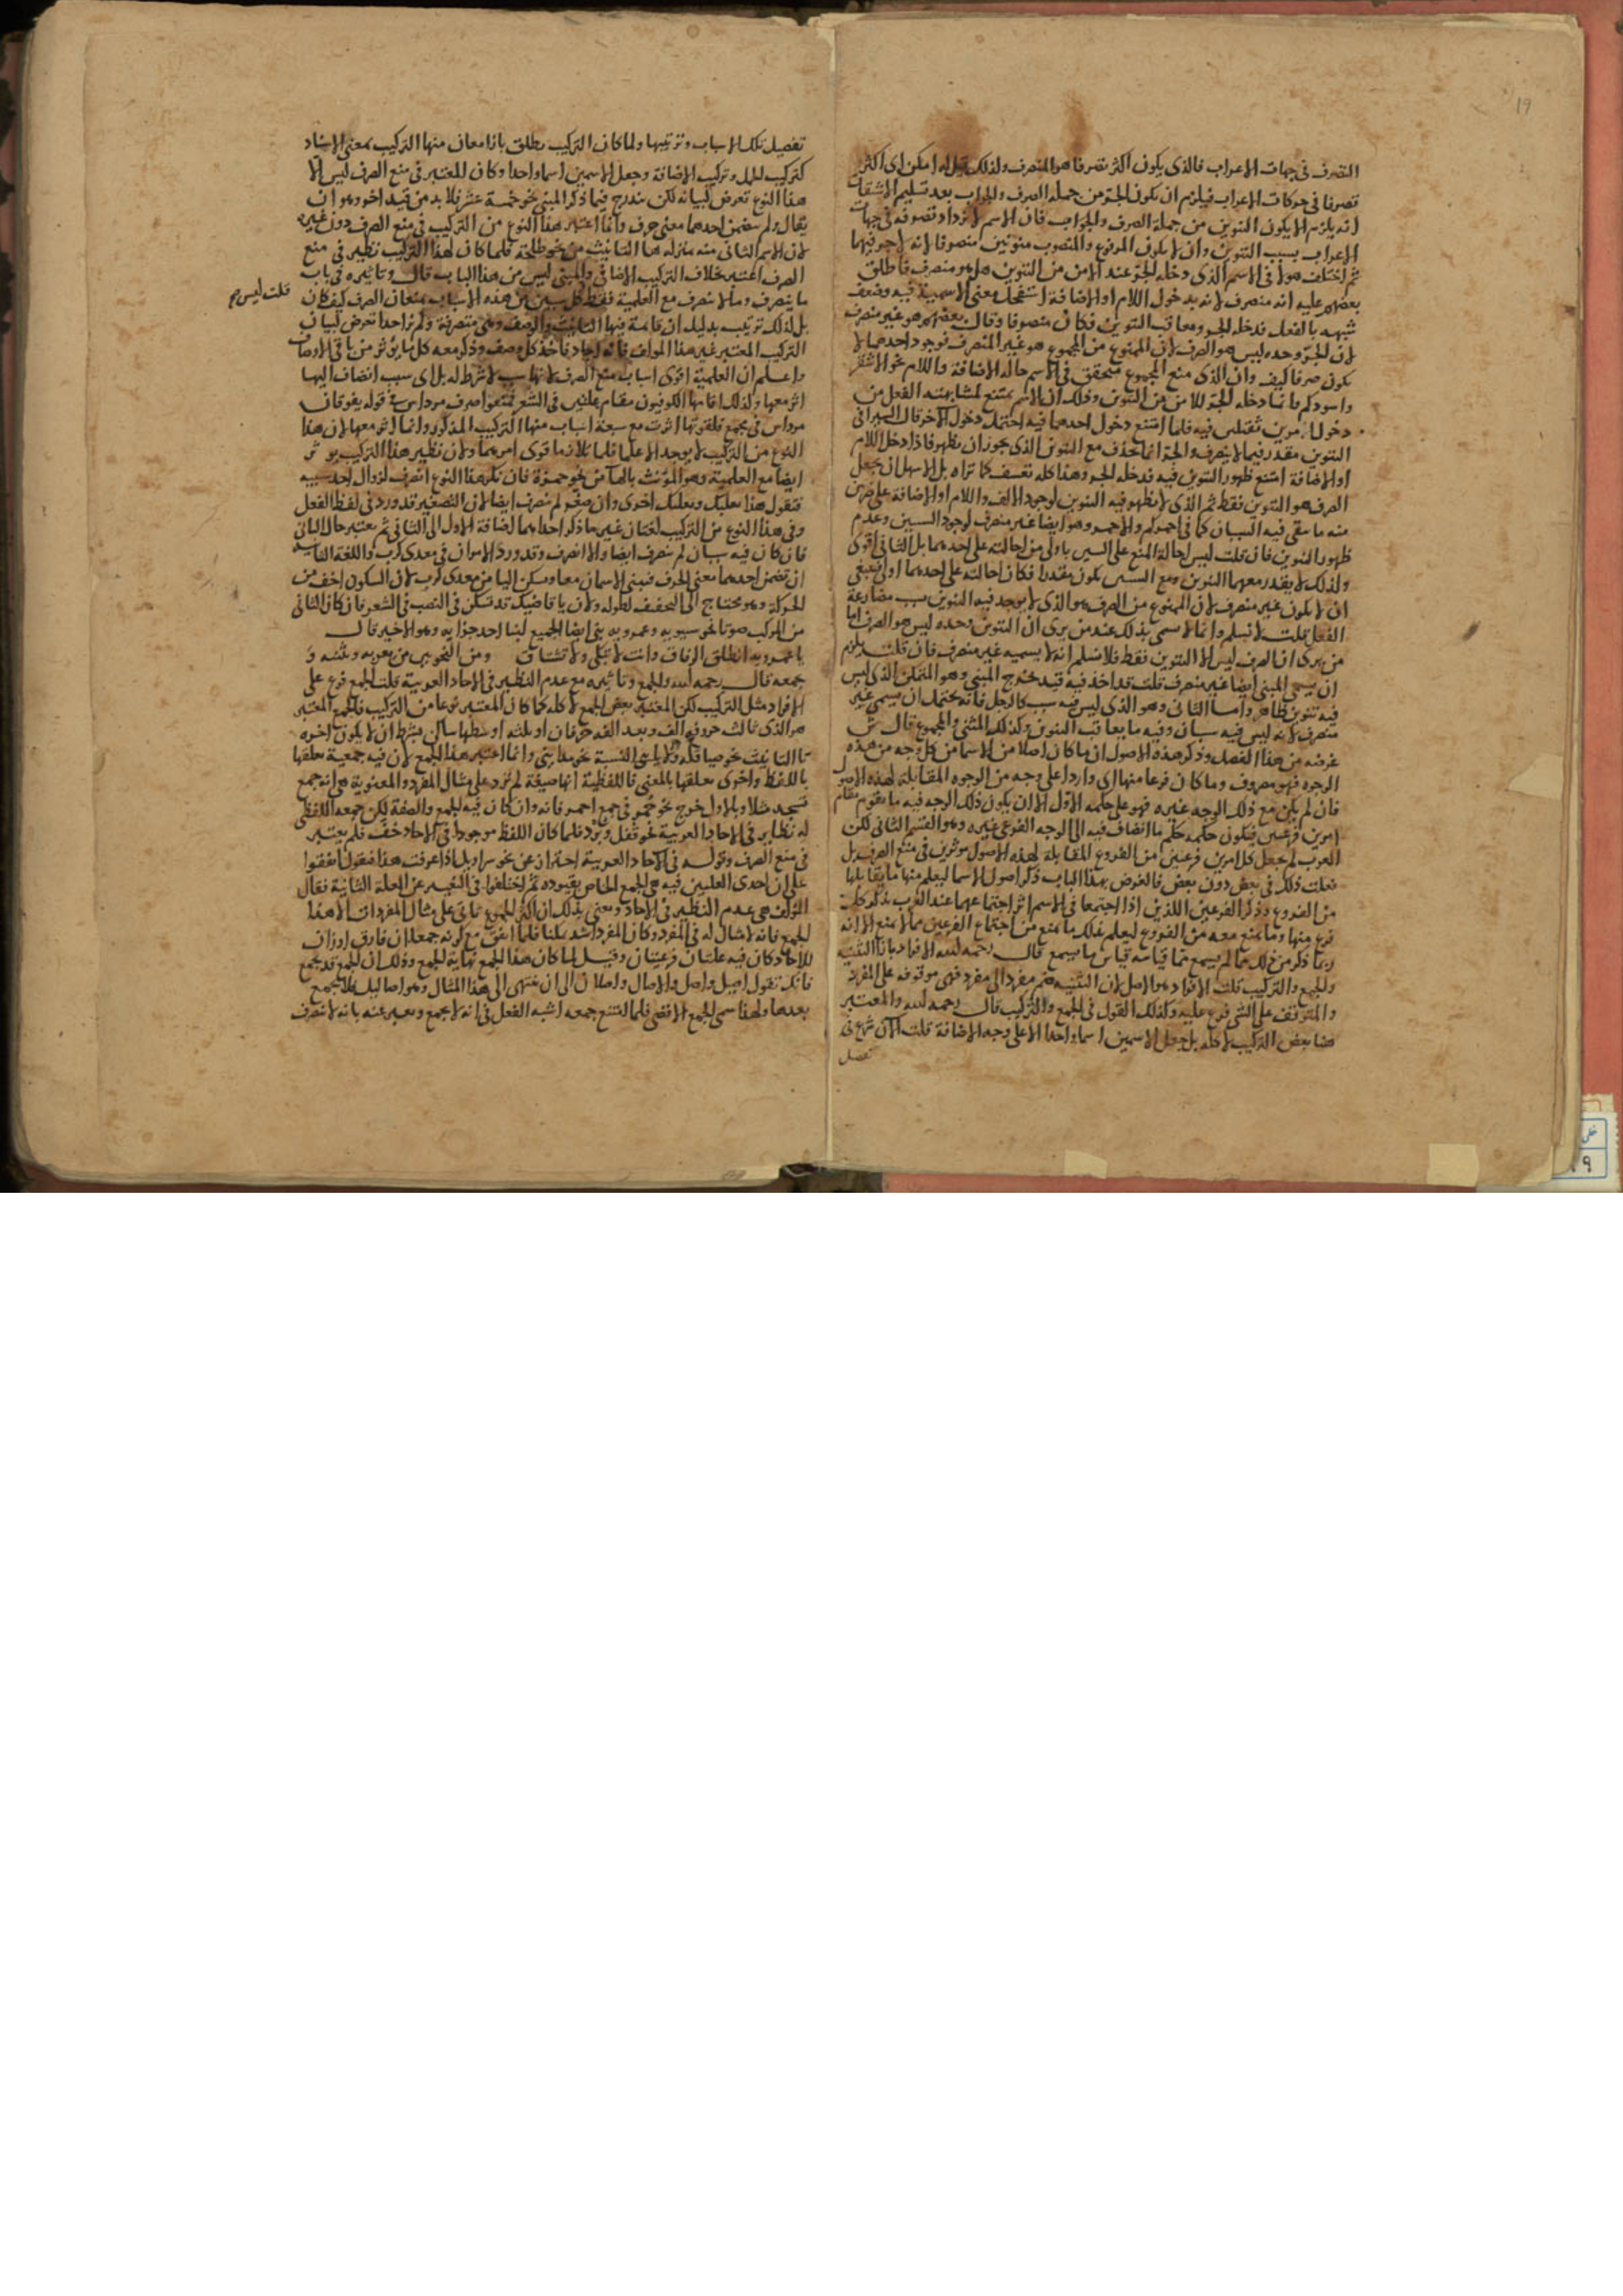 ١٩
التصرف في جهات الاعراب فالذى يكون اكثر تصرفا هو المنصرف ولذلك يقال له امكن اى اكثر
تصرفا في حركات الاعراب فيلزم ان يكون الجر من جملة الصرف والجواب بعد تسليم الاشتقاق
انه يلزم الا يكون التنوين من جملة الصرف والجواب فان الاسم لا يزداد تصرفه في جهات
الاعراب بسبب التنوين وان لا يكون المرفوع والمنصوب منونين منصرفا لانه لا جر فيهما
ثم اختلف هولا في الاسم الذى دخله الجر عند الامن من التنوين هل هو منصرف فاطلق
بعضهم عليه انه منصرف لانه بدخول اللام او الاضافة استحكم معنى الاسمية فيه وضعف
شبهه بالفعل فدخله الجر ومعاقب التنوين فكان منصرفا وقال بعضهم هو غير منصرف
لان الجر وحده ليس هو الصرف لان الممنوع من المجموع هو غير المنصرف فوجود احدهما لا
يكون صرفا كيف وان الذى منع المجموع متحقق في الاسم حالة الاضافة واللام نحو الاشقر
واسودكم وانما دخله الجر للامن من التنوين وذلك ان الاسم يمتنع لمشابهته الفعل من
دخول امرين فيه فلما امتنع دخول احدهما فيه احتمل دخول الآخر قال السيرافى
التنوين مقدر فيما لا ينصرف والجر انما يحذف مع التنوين الذى يجوز ان يظهر فاذا دخل اللام
او الاضافة امتنع ظهور التنوين فيه فدخله الجر وهذا كله تعسف كما تراه بل الاسهل ان يجعل
الصرف هو التنوين فقط ثم الذى لا يظهر فيه التنوين لوجود الالف واللام او الاضافة على ضربين
منه ما يبقى فيه السببان كما في احمركم والاحمر وهو ايضا غير منصرف لوجود السببين وعدم
ظهور التنوين فان قلت ليس احالة المنع على السببين باولى من احالته على احدهما بل الثانى اقوى
ولذلك لا يقدر معهما التنوين ومع السببين يكون مقدرا فكان احالته على احدهما اولى فينبغى
ان لا يكون غير منصرف لان الممنوع من الصرف هو الذى لا يوجد فيه التنوين بسبب مضارعة
الفعل قلت لا نسلم وانما لا يسمى بذلك عند من يرى ان التنوين وحده ليس هو الصرف اما
من يرى ان الصرف ليس الا التنوين فقط فلا نسلم انه لا يسميه غير منصرف فان قلت يلزم
ان يسمى المبنى ايضا غير منصرف قلت قد اخذ فيه قيد يخرج المبنى وهو المتمكن الذى ليس
فيه تنوين ظاهر واما الثانى وهو الذى ليس فيه سبب كالرجل فانه يحتمل ان يسمى غير
منصرف لانه ليس فيه سببان وفيه ما يعاقب التنوين وكذلك المثنى والمجموع قال ش
غرضه من هذا الفصل وذكر هذه الاصول ان ما كان اصلا من الاسما من كل وجه من هذه
الوجوه فهو مصروف وما كان فرعا منها اى واردا على وجه من الوجوه المقابلة لهذه الاصول
فان لم يكن مع ذلك الوجه غيره فهو على حكمه الاول الا ان يكون ذلك الوجه فيه ما يقوم مقام
امرين فرعيين فيكون حكمه حكم ما انضاف فيه الى الوجه الفرعى غيره وهو القسم الثانى لكن
العرب لم تجعل كل امرين فرعيين من الفروع المقابلة لهذه الاصول موثرين في منع الصرف بل
فعلت ذلك في بعض دون بعض فالغرض بهذا الباب ذكر اصول الاسما ليعلم منها ما يقابلها
من الفروع وذكر الفرعين اللذين اذا اجتمعا في الاسم اثر اجتماعهما عند العرب بذكر كل
فرع منها وما يمنع معه من الفروع ليعلم بذلك ما يمنع من اجتماع الفرعين مما لا يمنع الا انه
ربما ذكر من ذلك ما لم يسمع مما قياسه قياس ما سمع قال رحمه الله الافراد بازا التثنية
والجمع والتركيب قلت الافراد هو الاصل لان التثنية ضم مفرد الى مفرد فهى موقوفة على المفرد
والمتوقف على الشى فرع عليه وكذلك القول في الجمع والتركيب قال رحمه الله والمعتبر
هنا بعض التركيب لا كله بل جعل الاسمين اسما واحدا لا على وجه الاضافة قلت الآن شرع في
تفصيل
تفصيل تلك الاسباب وترتيبها ولما كان التركيب يطلق بازا معان منها التركيب بمعنى الاسناد
كتركيب الجمل وتركيب الاضافة وجعل الاسمين اسما واحدا وكان المعتبر في منع الصرف ليس الا
هذا النوع تعرض لبيانه لكن يندرج فيما ذكر المبنى نحو خمسة عشر فلا بد من قيد اخر وهو ان
يقال ولم يتضمن احدهما معنى حرف وانما اعتبر هذا النوع من التركيب في منع الصرف دون غيره
لان الاسم الثانى منه منزلة ها التانيث من نحو طلحة فلما كان لهذا التركيب نظير في منع
الصرف اعتبر بخلاف التركيب الاضافى والمبنى ليس من هذا الباب قال وتاثيره في باب
ما ينصرف وما لا ينصرف مع العلمية فقط كل سببين من هذه الاسباب يمنعان الصرف كيف كان
قلت ليس
بل لذلك ترتيب بدليل ان قائمة فيها التانيث والوصف وهى منصرفة ولم نر احدا تعرض لبيان
التركيب المعتبر غير هذا المولف فانه اجاد فاخذ كل وصف وذكر معه كل ما يؤثر من باقى الاوصاف
واعلم ان العلمية اقوى اسباب منع الصرف لانها سبب لا شرط له بل اى سبب انضاف اليها
اثر معها ولذلك اقامها الكوفيون مقام علتين في الشعر فمنعوا صرف مرداس في قوله يفوقان
مرداس في مجمع فلقوتها اثرت مع سبعة اسباب منها التركيب المذكور وانما اثر معها لان هذا
النوع من التركيب لا يوجد الا علما فلما تلازما قوى امرهما ولان نظير هذا التركيب يوثر
ايضا مع العلمية وهو المؤنث بالهاء نحو حمزة فان نكر هذا النوع انصرف لزوال احد سببيه
فتقول هذا بعلبك وبعلبك اخرى وان صغر لم ينصرف ايضا لان التصغير قد ورد في لفظ الفعل
وفى هذا النوع من التركيب لغتان غير ما ذكر احداهما اضافة الاول الى الثانى ثم يعتبر حال الثانى
فان كان فيه سببان لم ينصرف ايضا والا انصرف وقد ورد الامران في معدى كرب واللغة الثانية
ان تضمن احدهما معنى الحرف فيبنى الاسمان معا وسكن اليا من معدى كرب لان السكون اخف من
الحركة وهو محتاج الى التخفيف لطوله ولان يا قاضيك قد تسكن في النصب في الشعر فان كان الثانى
من المركب صوتا نحو سيبويه وعمرويه بنى ايضا الجميع لبنا احد جزأيه وهو الاخير قال
يا عمرويه انطلق الرفاق وانت لا تبكى ولا تشتاق ومن النحويين من يعربه ويثنيه و
يجمعه قال رحمه الله والجمع وتاثيره مع عدم النظير في الاحاد العربية قلت الجمع فرع على
الافراد مثل التركيب لكن المعتبر بعض الجمع لا كله كما كان المعتبر نوعا من التركيب فالجمع المعتبر
هو الذى ثالث حروفه الف وبعد الفه حرفان او ثلثه اوسطها ساكن بشرط ان لا يكون اخره
تا التانيث نحو صياقلة ولا ياى النسبة نحو مداينى وانما اعتبر هذا الجمع لان فيه جمعية تعلقها
باللفظ واخرى تعلقها بالمعنى فاللفظية انها صيغة لم ترد على مثال المفرد والمعنوية هى انه جمع
مسجد مثلا وبالاول خرج نحو حمر في جمع احمر فانه وان كان فيه الجمع والصفة لكن جمعه اللفظى
له نظاير في الاحاد العربية نحو قفل وبرد فلما كان اللفظ موجودا في الاحاد خف فلم يعتبر
في منع الصرف وقوله في الآحاد العربية احتراز عن نحو سراويل اذا عرفت هذا فنقول اتفقوا
على ان احدى العلتين فيه هى الجمع الخاص بقيوده ثم اختلفوا في التعبير عن العلة الثانية فقال
المولف هى عدم النظير في الاحاد ويعنى بذلك ان اكثر الجموع تاتى على مثال المفردات الا هذا
الجمع فانه لا مثال له في المفرد وكان المفرد اشد تمكنا فلما اتفق مع كونه جمعا ان فارق اوزان
الاحاد كان فيه علتان فرعيتان وقيل لما كان هذا الجمع نهاية الجمع وذلك ان الجمع قد يجمع
فانك تقول اصيل واصل والآصال واصلان الى ان تنتهى الى هذا المثال وهو اصاليل فلا يجمع
بعدها ولهذا سمى الجمع الاقصى فلما امتنع جمعه اشبه الفعل في انه لا يجمع ويعبر عنه بانه لا ينصرف